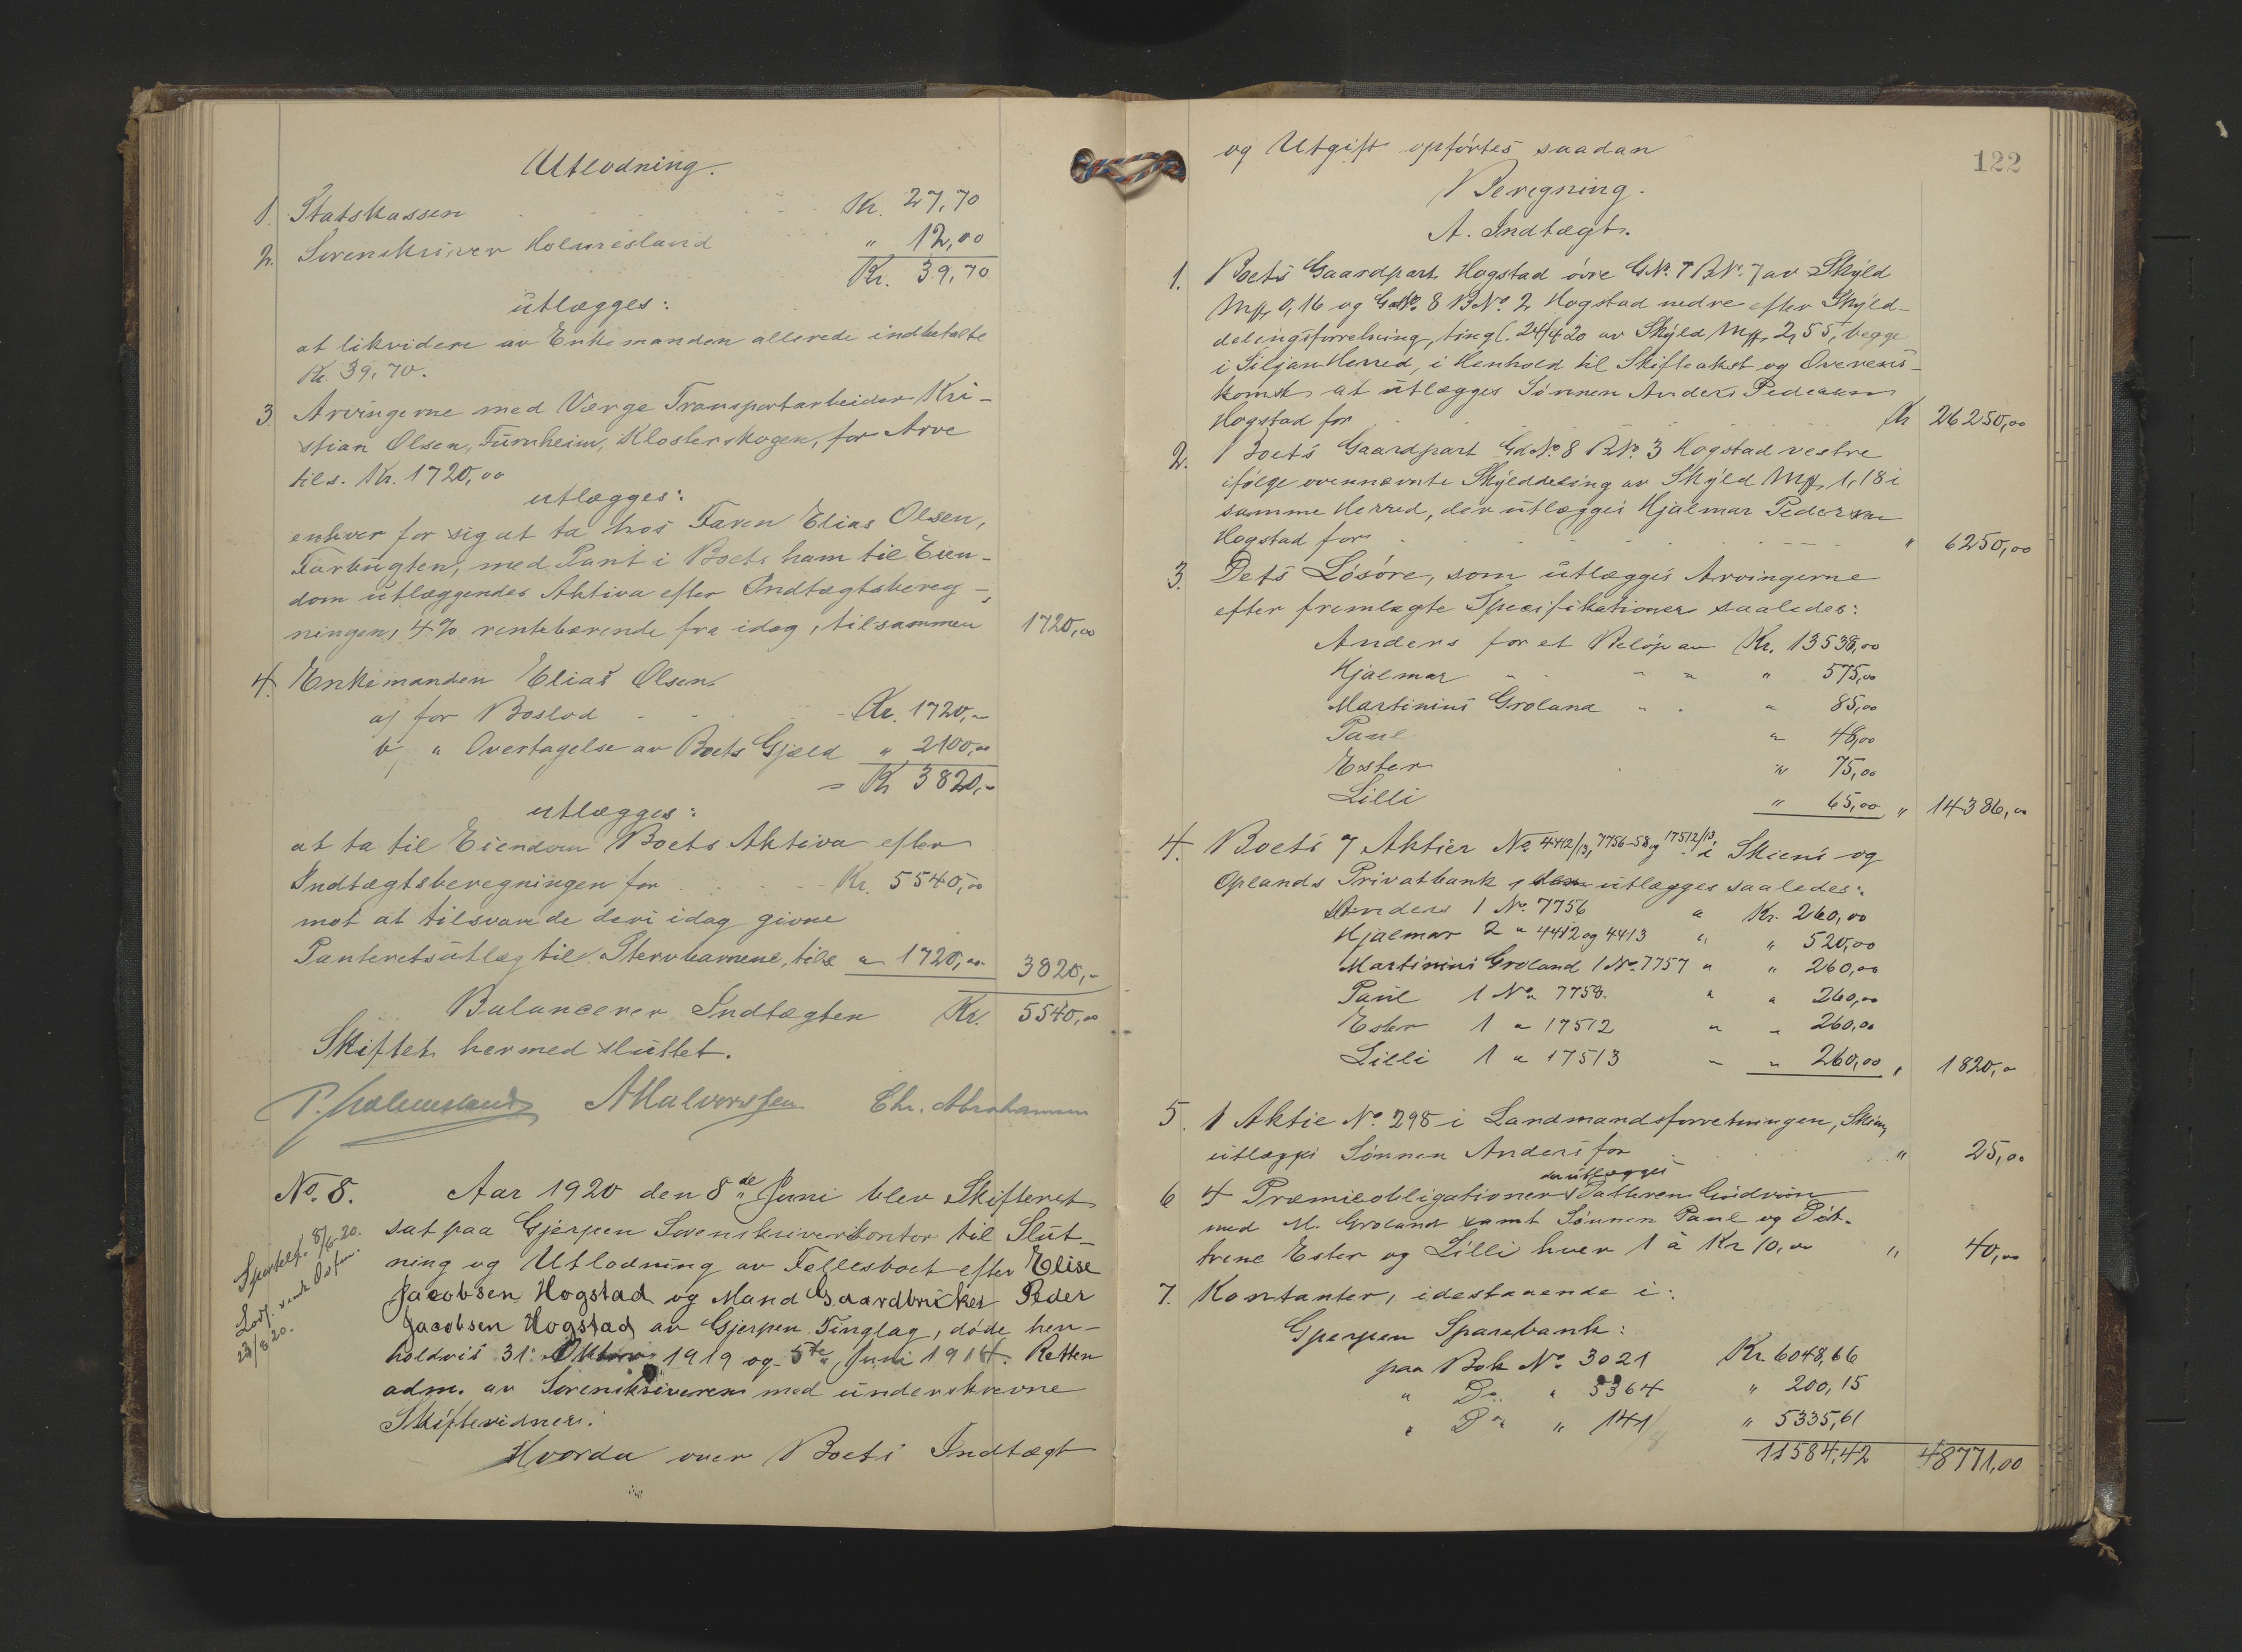 Utlodning.
1. Statskassen Kr. 27,70
2. Sorenskriver Holmesland " 12,00
Kr. 39,70
utlægges:
at likvidere av Enkemanden allerede indbetalte
Kr. 39,70.
3. Arvingerne med Værge Transportarbeider Kri-
stian Olsen, Furuheim, Klosterskogen, for Arv
tils. Kr. 1720,00
utlægges:
enhver for sig at ta hos Faren Elias Olsen,
med Pant i Boets ham til Eien-
dom utlæggendes Aktiva efter Indtægtsbereg-
ningen, 4% rentebærende fra idag, tilsammen 1720,00
4. Enkemanden Elias Olsen
a) for Boslod Kr. 1720,-
b) " Overtagelse av Boets Gjæld " 2100,00
= Kr 3820,-
utlægges:
at ta til Eiendom Boets Aktiva efter
Indtægtsberegningen for Kr. 5540,00
mot at tilsvare de deri idag givne
Panteretsutlæg til Stervbarnene, tils " 1720,00 3820,-
Balancerer Indtægten Kr. 5540,00
Skiftet hermed sluttet.
P. Holmesland AHalvorssen Chr. Abrahamsen
No. 8. Aar 1920 den 8de Juni blev Skifteret
sat paa Gjerpen Sorenskriverkontor til Slut-
ning og Utlodning av Fellesboet efter Elise
Jacobsen Hogstad og Mand Gaardbruker Peder
Jacobsen Hogstad av Gjerpen Tinglag, døde hen-
holdvis 31. 1919 og 5te Juni 1914. Retten
adm. av Sorenskriveren med underskrevne
Skiftevidner.
Hvorda over Boets Indtægt
8/6-20.
23/8 20.
122
og Utgift opførtes saadan
Beregning.
A. Indtægt.
1. Boets Gaardpart Hogstad øvre GNo. 7 BNo. 7 av Skyld
Mk 0,16 og GNo. 8 BNo. 2 Hogstad nedre efter Skyld-
delingsforretning, tingl. 24/4 20 av Skyld Mk 2,55, begge
i Siljan Herred, i Henhold til Skifteakst og Overens-
komst at utlægges Sønnen Anders Pedersen
Hogstad for Kr 26250,00
2. Boets Gaardpart GdNo. 8 BNo. 3 Hogstad vestre
ifølge ovennævnte Skylddeling av Skyld Mk 1,18 i
samme Herred, der utlægges Hjalmar Pedersen
Hogstad for " 6250,00
3. Dets Løsøre, som utlægges Arvingerne
efter fremlagte Specifikationer saaledes:
Anders for et Beløp av Kr. 13538,00
Hjalmar " " " " 575,00
Martinius Groland " " " 85,00
Paul " 48,00
Ester " 75,00
Lilli " 65,00 " 14386,00
4. Boets 7 Aktier No. 4412/13, 7756-58 og 17512/13, i Skiens og
Oplands Privatbank, utlægges saaledes:
Anders 1 No. 7756 " Kr. 260,00
Hjalmar 2 " 4412 og 4413 " " 520,00
Martinius Groland 1 No. 7757 " " 260,00
Paul 1 No. 7758. " " 260,00
Ester 1 " 17512 " " 260,00
Lilli 1 " 17513 " " 260,00 " 1820,00
5. 1 Aktie No. 298 i Landmandsforretningen, Skien,
utlægges Sønnen Anders for " 25,00
der utlægges
6 4 Præmieobligationer Datteren Gudrun
med M. Groland samt Sønnen Paul og Døt-
trene Ester og Lilli hver 1 à Kr 10,00 " 40,00
7. Kontanter, idestaaende i:
Gjerpen Sparebank:
paa Bok No. 3021 Kr. 6048,66
" Do. " 5364 " 200,15
" Do. " 141 " 5335,61
11584,42 48771,00